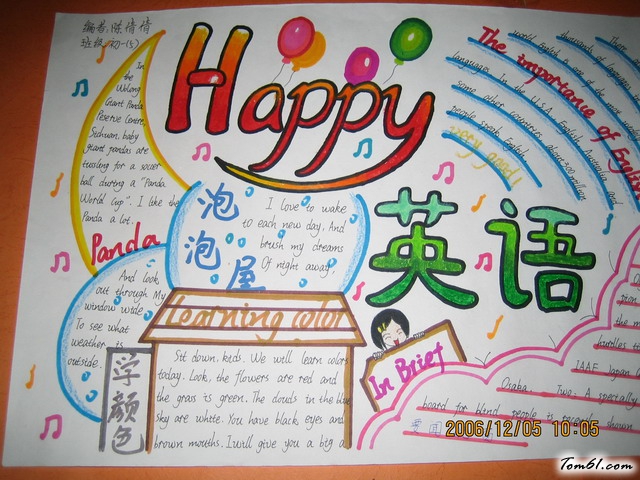 编者:陈倩倩
班级:初一(5)
Happy
英语
In
the
Wolong
Giant Panda
Reserve Centre,
Sichuan, baby
giant pandas are
tussling for a soccer
ball during a "Panda
World Cup". I like the
Panda a lot.
Panda
泡
泡
屋
I love to wake
to each new day, And
brush my dreams
Of night away,
And look
out through My
window wide
To see what
weather is
outside.
Learning color
学颜色
Sit down, kids. We will learn colors
today. Look, the flowers are red and
the grass is green. The clouds in the blue
sky are white. You have black eyes and
brown mouths. I will give you a big a
In Brief
The importance of English
There
thousands of
world. English is one of the most
languages. In the U.S.A., English
some other countries, about 300 million
people speak English
Very good!
the
hurdles
IAAF Japan
Osaka. Two. A specially
board for blind people is recently shown
2006/12/05 10:05
Tom61.com